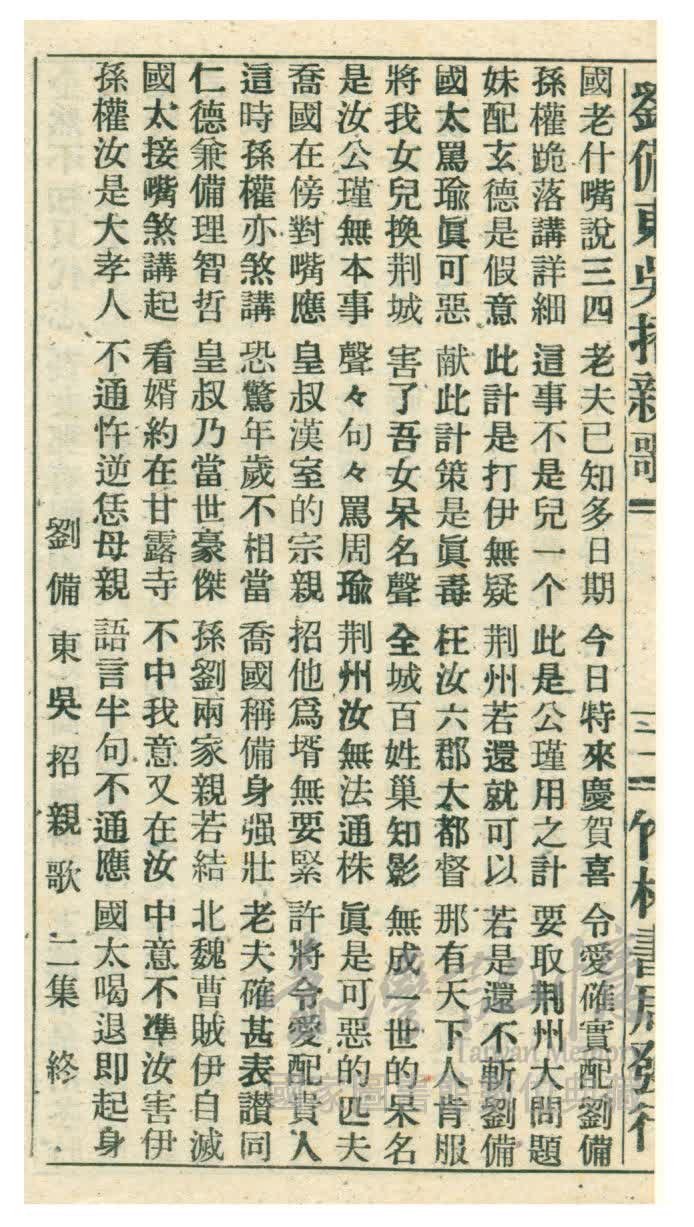 劉備東吳招親歌 三一 竹林書局發行
國老什嘴說三四 老夫已知多日期 今日特來慶賀喜 令愛確實配劉備
孫權跪落講詳細 這事不是兒一个 此是公瑾用之計 要取荆州大問題
妹配玄德是假意 此計是打伊無疑 荆州若還就可以 若是還不斬劉備
國太罵瑜眞可惡 献此計策是眞毒 枉汝六郡太都督 那有天下人肯服
將我女兒換荆城 害了吾女呆名聲 全城百姓巢知影 無成一世的呆名
是汝公瑾無本事 聲々句々罵周瑜 荆州汝無法通株 眞是可惡的匹夫
喬國在傍對嘴應 皇叔漢室的宗親 招他爲壻無要緊 許將令愛配貴人
這時孫權亦煞講 恐驚年歲不相當 喬國稱備身强壯 老夫確甚表讃同
仁德兼備理智哲 皇叔乃當世豪傑 孫劉兩家親若結 北魏曹賊伊自滅
國太接嘴煞講起 看婿約在甘露寺 不中我意又在汝 中意不準汝害伊
孫權汝是大孝人 不通忤逆恁母親 語言半句不通應 國太喝退即起身
劉備東吳招親歌 二集 終
臺灣記憶
Taiwan Memory
國家圖書館數位典藏